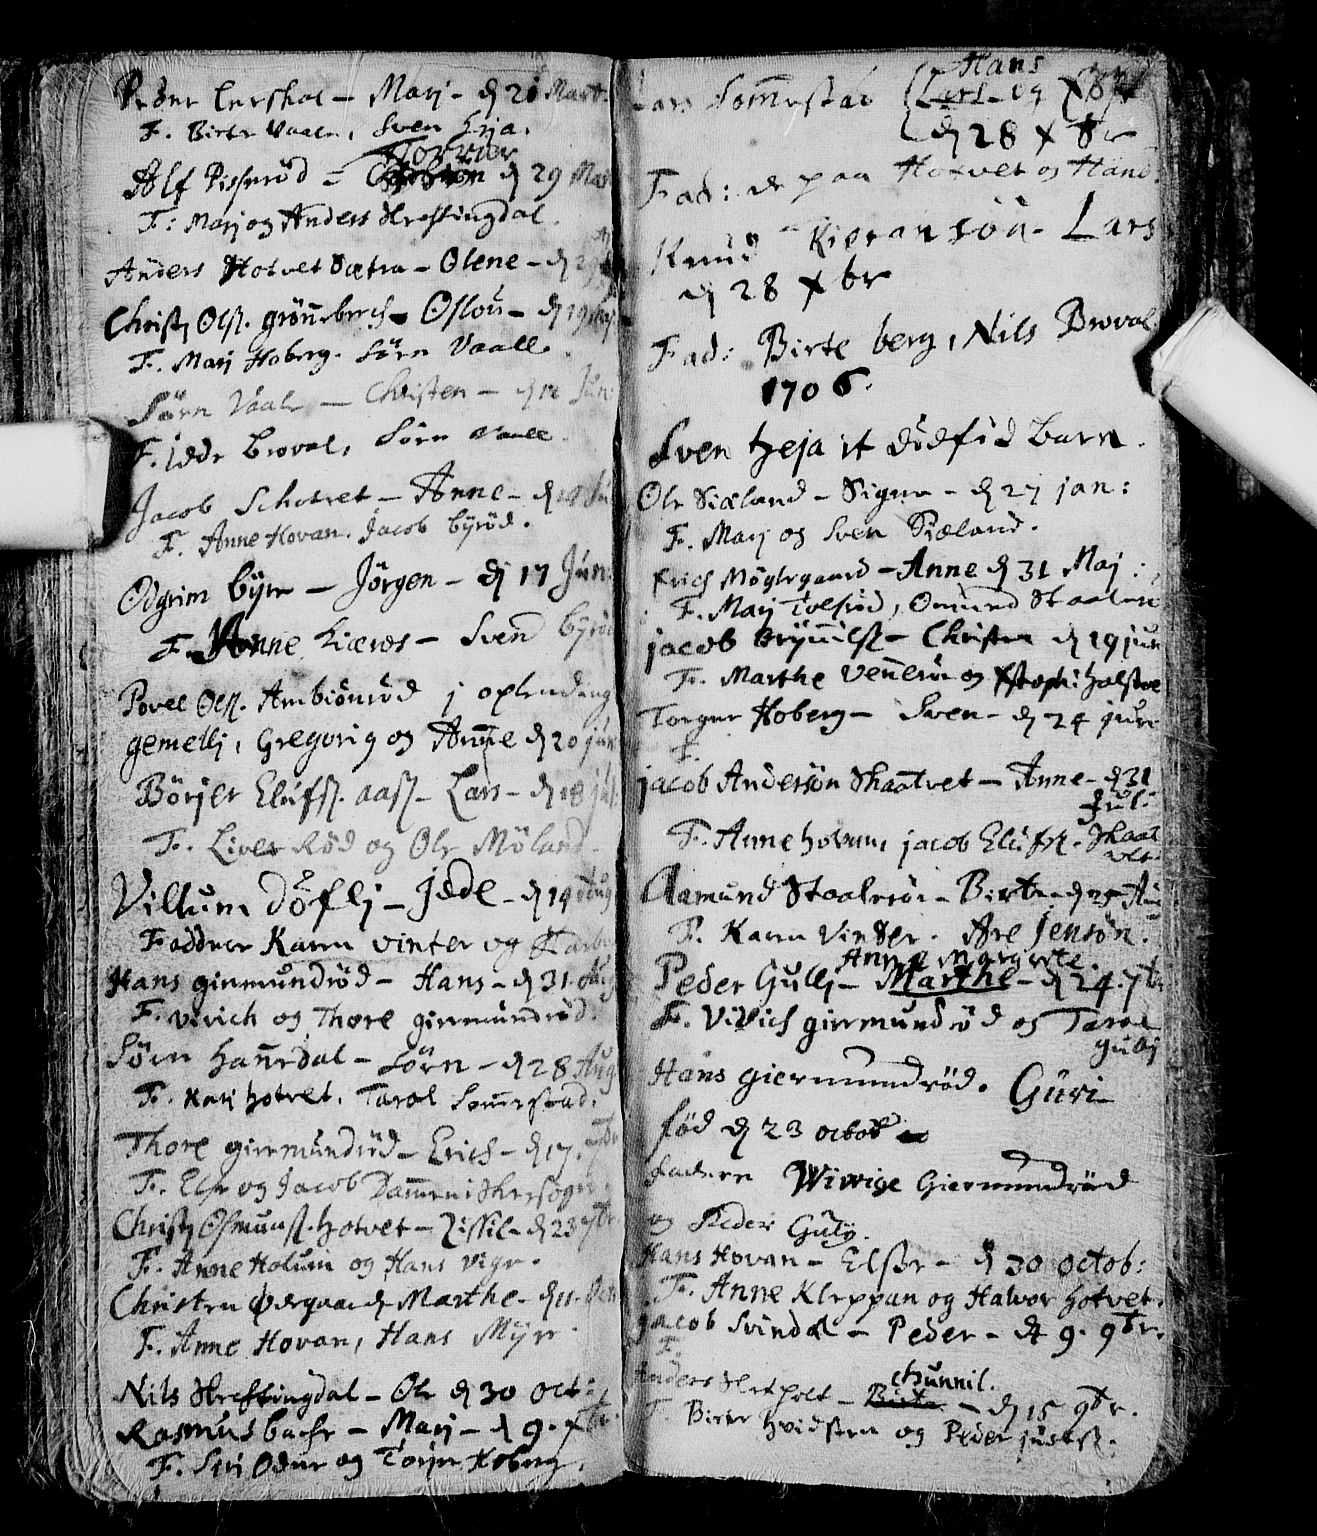 Peder Lershol – Marj – d 21 Mart.
F. Birte Vaale, Sven Heja.
Torkier
Alf Pisserød – d 29 Mar
F: Marj og Anders Skressingdal.
Anders Hotvet Sætra – Olene – d 29
Christ Olss. grönneberch – Oslou – d 19 Maj
F. Marj Hoberg. Sörn Vaall.
Sörn Vaale – Christen – d Jun:
F. Jede broval, Sörn Vaall.
Jacob Schotvet – Anne – d 19 Ju
F. Anne Hovan. Jacob byröd.
Odgrim byrr – Jörgen – d 17 Jun:
F. Anne Kiæraas – Svend byröd
Povel Olss. Ambiönröd j oplending
gemellj, Gregorig og Anne d 20 jun
Börjer Elufss. aass – Lars – d 18 jul
F. Liver Röd og Ole Möland.
Villum Döflj – Jede – d 19 Aug
Faddrer Karen Vinter og
Hans girmundröd – Hans – d 31. Aug
F. Virich og Thore girmundröd.
Sörn hannedal – Sörn – d 28 Aug
F. Karj hotvet, Tarol Sommerstad.
Thore girmundröd – Erich – d 17. 7br
F. Else og Jacob Dammen i Skeesogn.
Christ Osmunss. hotvet – Zissil – d 23 7br
F. Anne Holum og Hans Vigr.
Christen Ødegaard – Marthe – d 11. Oct
F. Anne Hovan, Hans Myrr
Nils Skressingdal – Ole d 30 Oct:
Rasmus backe – Marj – d 9. Xbr.
F. Siri Odne og Torjer Hoberg.
Hans
Lars Sommerstad Lars – og
d 28 Xbr
Fad: de paa Hotvet og Hand.
Knud Kioranson – Lars
d 28 Xbr
Fad: Birte berg, Nils Broval
1706.
Sven heja it dödföd barn.
Ole Siæland – Signe – d 27 jan:
F. Marj og Sven Siæland.
Erich Möglegaard – Anne d 31 Maj:
F. Marj Tvesröd, Omund Staalerö
jacob Brynnilss – Christen d 19 jun
F. Marthe Vennerön og Xstoph: holstve
Torger Hoberg – Sven – d 24 june
F.
jacob Anderson Skaatvet – Anne – d 31
Jul:
F. Anne hovan, jacob Elufss. Skaat
vet.
Aamund Staalerön – Birte – d 25 Au
F. Karen Vinter. Are Jensön.
Anne Margrete.
Peder Gullj – Marthe – d 24. 7br
F. Vivich girmundröd og Tarol
gullj
Hans giermundröd. Guri
föd d 23 octob
Fadere Wivige Giermundröd
og Peder Guly.
Hans Hovan – Elsse – d 30 octob:
F. Anne Kleppan og Halvor hotvet.
Jacob Svindal – Peder – d 9. 9br.
F.
Gunnil.
Anders Skieholt – Birte – d 15 9br.
F. Birte hvidsten og Peder justss.